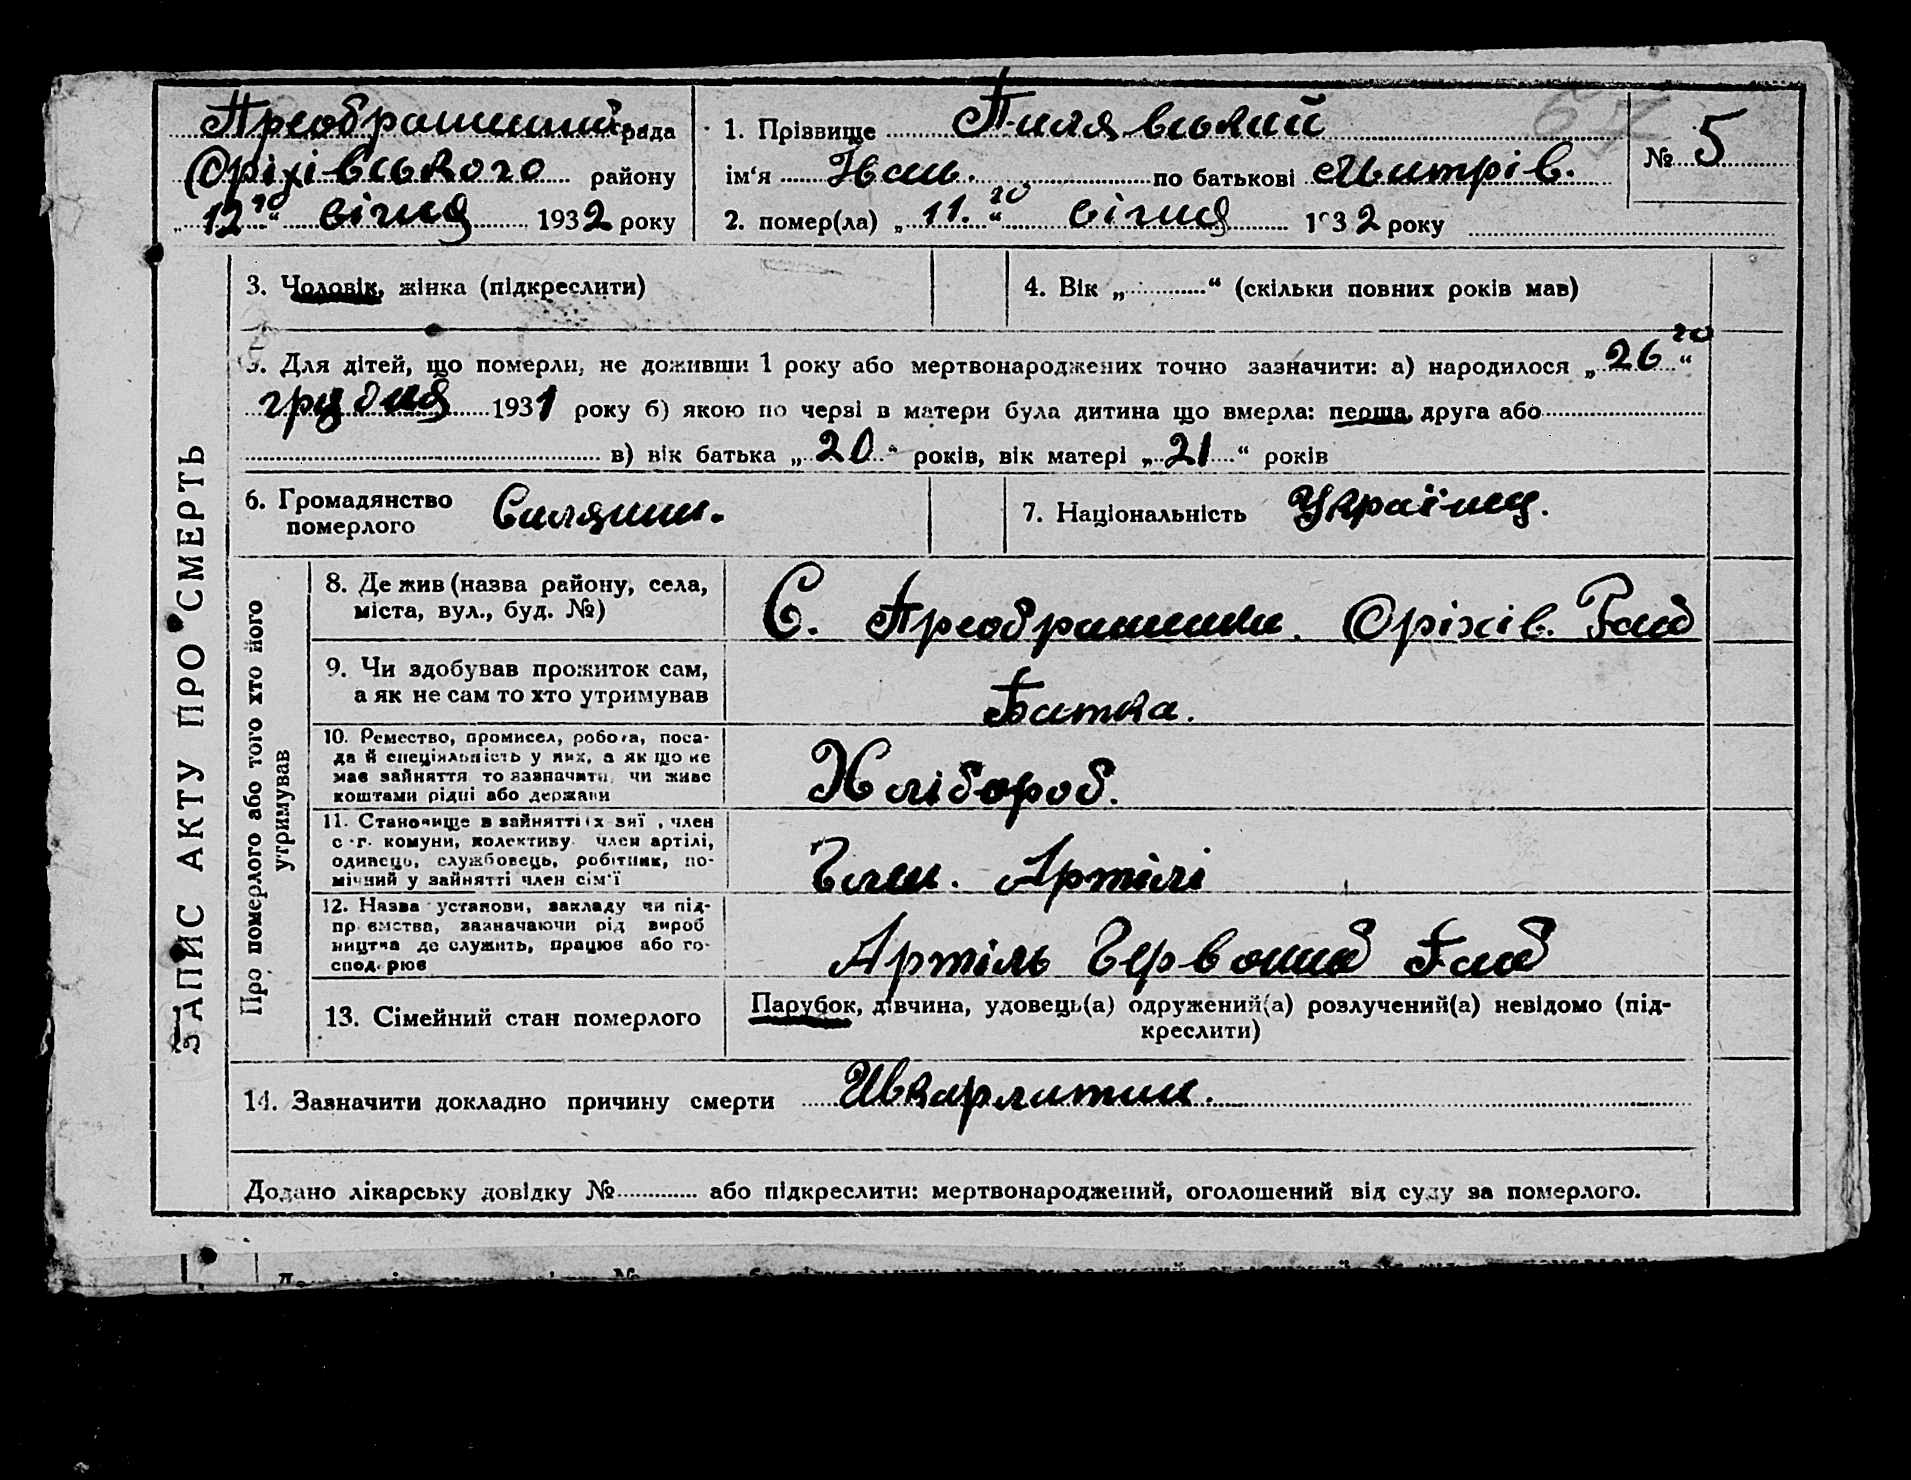 Преображенська рада
Оріхівського району
„12го“ січня 1932 року
1. Прізвище Пилявський
ім‘я Іван. по батькові Дмитрів.
2. помер(ла) „11.го“ січня 1932 року
№ 5
67
ЗАПИС АКТУ ПРО СМЕРТЬ
3. Чоловік, жінка (підкреслити)
4. Вік „............“ (скільки повних років мав)
5. Для дітей, що померли, не доживши 1 року або мертвонароджених точно зазначити: а) народилося „26го“
грудня 1931 року б) якою по черзі в матери була дитина що вмерла: перша, друга або
в) вік батька „20“ років, вік матері „21“ років
6. Громадянство
померлого
Силянин.
7. Національність Українец.
Про померлого або того хто його
утримував
8. Де жив (назва району, села,
міста, вул., буд. №)
С. Преображенка. Оріхів. Рай
9. Чи здобував прожиток сам,
а як не сам то хто утримував
Батька.
10. Ремество, промисел, робота, поса-
да й спеціяльність у них, а як що не
має зайняття то зазначити, чи живе
коштами рідні або держави
Хлібороб.
11. Становище в зайнятті
с.-г. комуни, колективу, член артілі,
одинець, службовець, робітник, по-
мічний у зайнятті член сім‘ї
Член. Артілі
12. Назва установи, закладу чи під-
приємства, зазначаючи рід вироб
ництва де служить, працює або го-
сподарює
Артіль Червоний
13. Сімейний стан померлого
Парубок, дівчина, удовець(а) одружений(а) розлучений(а) невідомо (під-
креслити)
14. Зазначити докладно причину смерти Шкарлятин.
Додано лікарську довідку №............ або підкреслити: мертвонароджений, оголошений від суду за померлого.